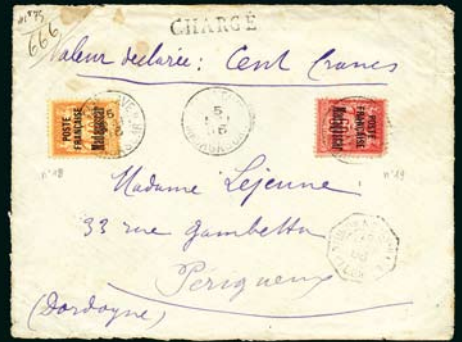 CHARGÉ
666
Valeur declarée: Cent Francs
POSTE
FRANÇAISE
Madagascar
5
POSTE
FRANÇAISE
Madagascar
n°18
n°19
Madame Lejeune
33 rue Gambetta
Périgueux
(Dordogne)